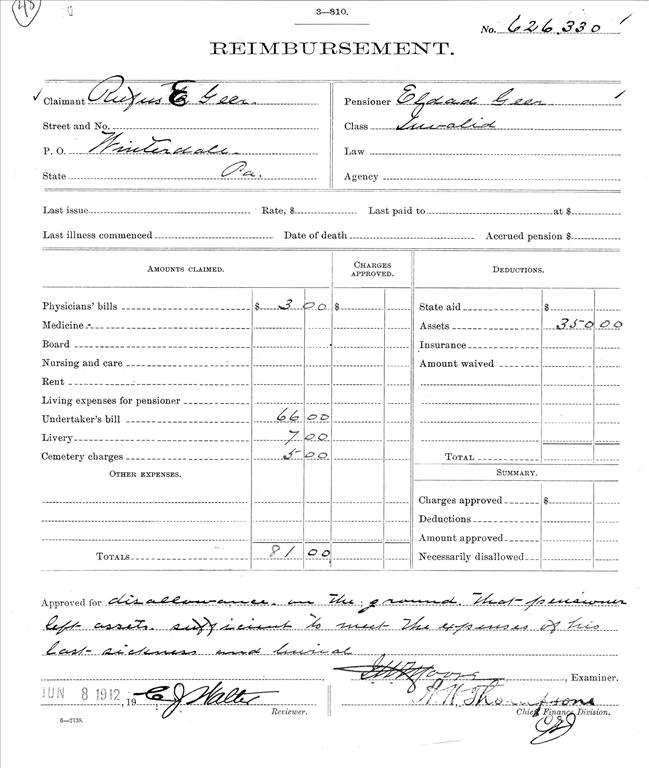 48
3—810.
No. 626,330
REIMBURSEMENT.
Claimant Rufus E Geer.
Pensioner Eldad Geer
Street and No.
Class Invalid
P. O. Winterdale
Law
State Pa.
Agency
Last issue Rate, $ Last paid to at $
Last illness commenced Date of death Accrued pension $
AMOUNTS CLAIMED. CHARGES APPROVED. DEDUCTIONS.
Physicians' bills $ 3 00 $ State aid $
Medicine Assets 350 00
Board Insurance
Nursing and care Amount waived
Rent
Living expenses for pensioner
Undertaker's bill 66 00
Livery 7 00
Cemetery charges 5 00 TOTAL
OTHER EXPENSES. SUMMARY.
Charges approved $
Deductions
Amount approved
TOTALS 81 00 Necessarily disallowed
Approved for disallowance on the ground that pensioner
left assets sufficient to meet the expenses of his
last sickness and burial
, Examiner.
JUN 8 1912, 19 C J Walter A. W. Thompson
Reviewer. Chief, Finance Division.
6—2138.